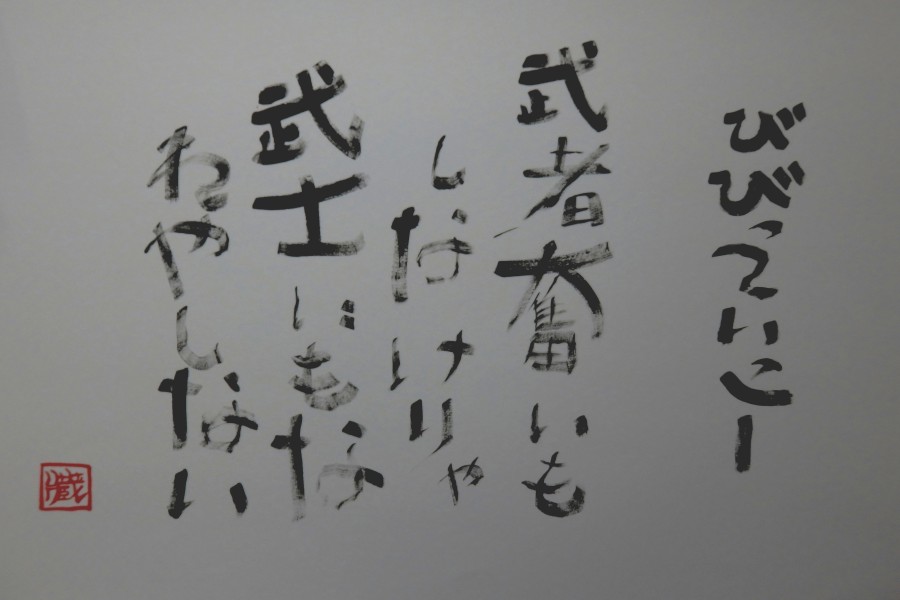 びびっていこー
武者奮いも
しなけりゃ
武士にもな
れやしない
蔵